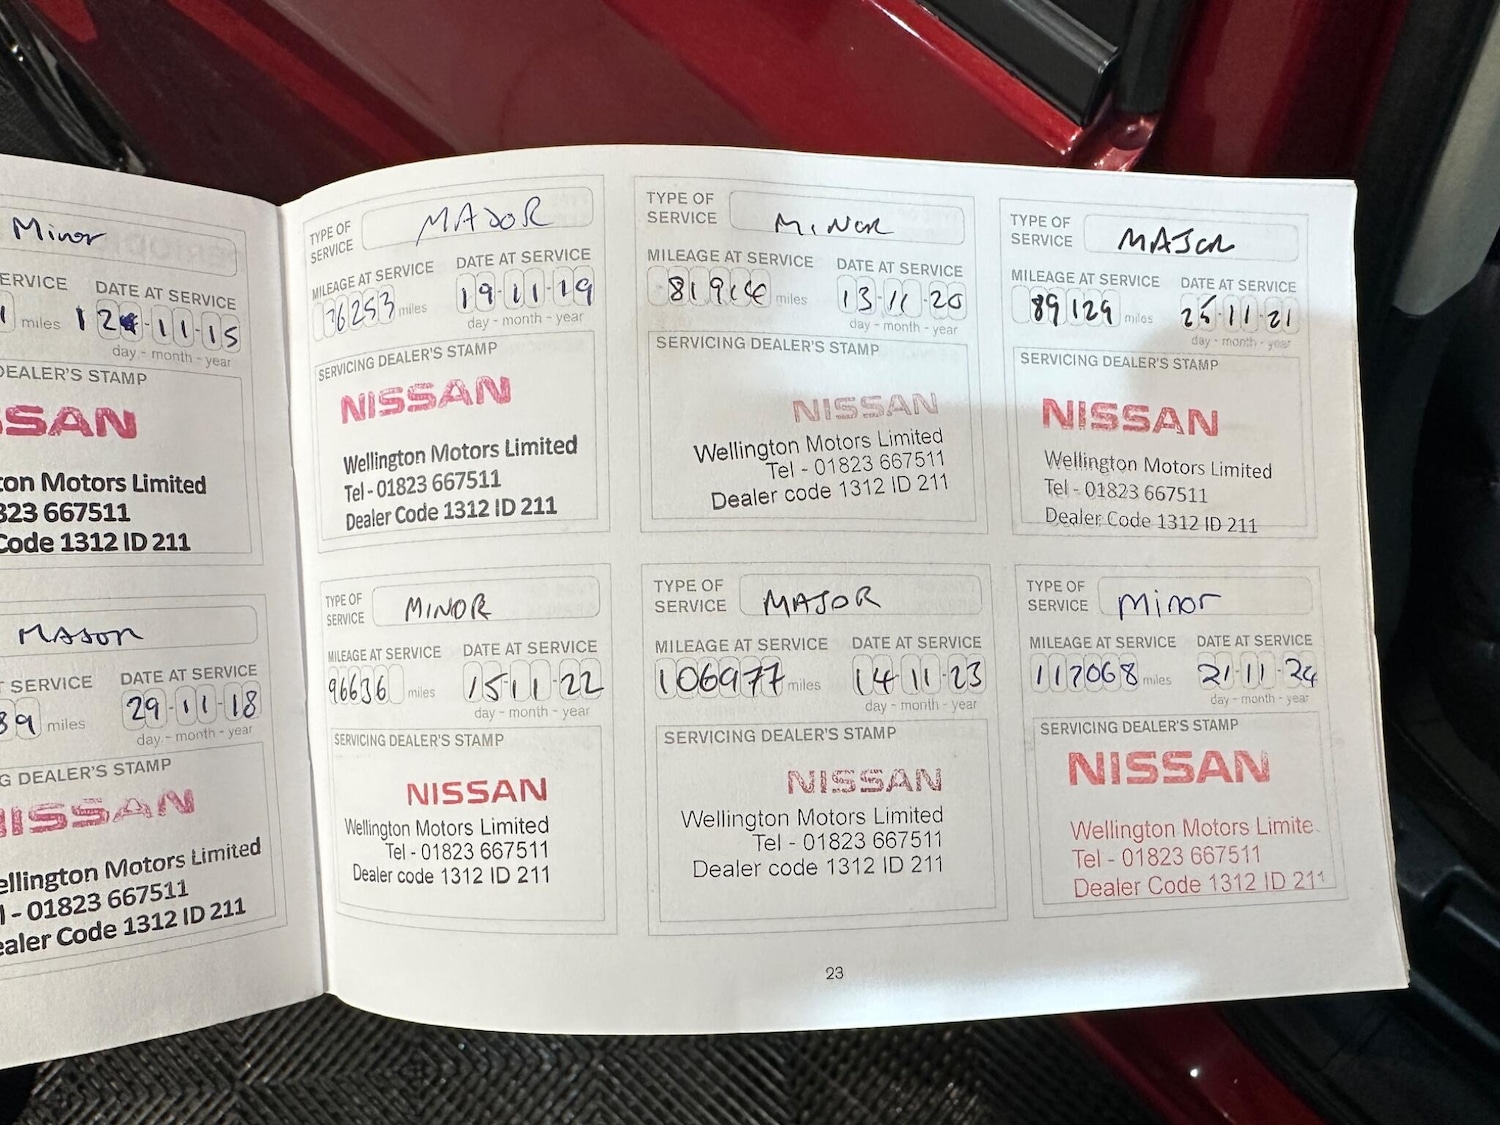 Minor
ERVICE DATE AT SERVICE
1 miles 12-11-15
day - month - year
DEALER'S STAMP
SSAN
ton Motors Limited
823 667511
Code 1312 ID 211
MAJOR
T SERVICE DATE AT SERVICE
89 miles 29-11-18
day - month - year
G DEALER'S STAMP
NISSAN
ellington Motors Limited
l - 01823 667511
ealer Code 1312 ID 211
TYPE OF SERVICE MAJOR
MILEAGE AT SERVICE DATE AT SERVICE
76253 miles 19-11-19
day - month - year
SERVICING DEALER'S STAMP
NISSAN
Wellington Motors Limited
Tel - 01823 667511
Dealer Code 1312 ID 211
TYPE OF SERVICE MINOR
MILEAGE AT SERVICE DATE AT SERVICE
miles 13-11-20
day - month - year
SERVICING DEALER'S STAMP
NISSAN
Wellington Motors Limited
Tel - 01823 667511
Dealer code 1312 ID 211
TYPE OF SERVICE MAJOR
MILEAGE AT SERVICE DATE AT SERVICE
89129 miles 25-11-21
day - month - year
SERVICING DEALER'S STAMP
NISSAN
Wellington Motors Limited
Tel - 01823 667511
Dealer Code 1312 ID 211
TYPE OF SERVICE MINOR
MILEAGE AT SERVICE DATE AT SERVICE
96636 miles 15-11-22
day - month - year
SERVICING DEALER'S STAMP
NISSAN
Wellington Motors Limited
Tel - 01823 667511
Dealer code 1312 ID 211
TYPE OF SERVICE MAJOR
MILEAGE AT SERVICE DATE AT SERVICE
106977 miles 14-11-23
day - month - year
SERVICING DEALER'S STAMP
NISSAN
Wellington Motors Limited
Tel - 01823 667511
Dealer code 1312 ID 211
TYPE OF SERVICE Minor
MILEAGE AT SERVICE DATE AT SERVICE
117068 miles 21-11-24
day - month - year
SERVICING DEALER'S STAMP
NISSAN
Wellington Motors Limite
Tel - 01823 667511
Dealer Code 1312 ID 211
23